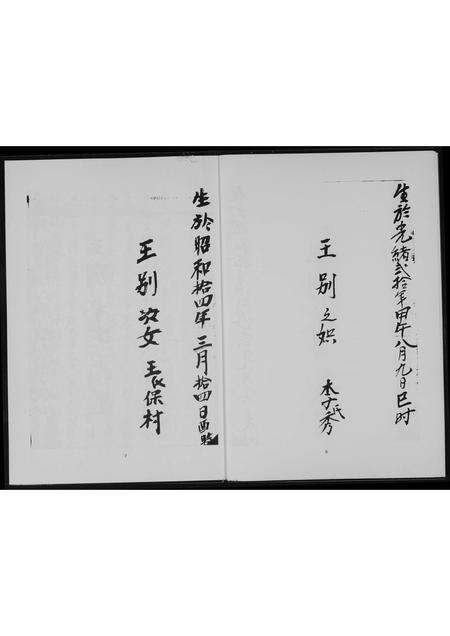 生於光緒弍拾年甲午八月九日巳时
王别之媳
李氏秀
生於昭和拾四年三月拾四日酉時
王别次女 王氏保村